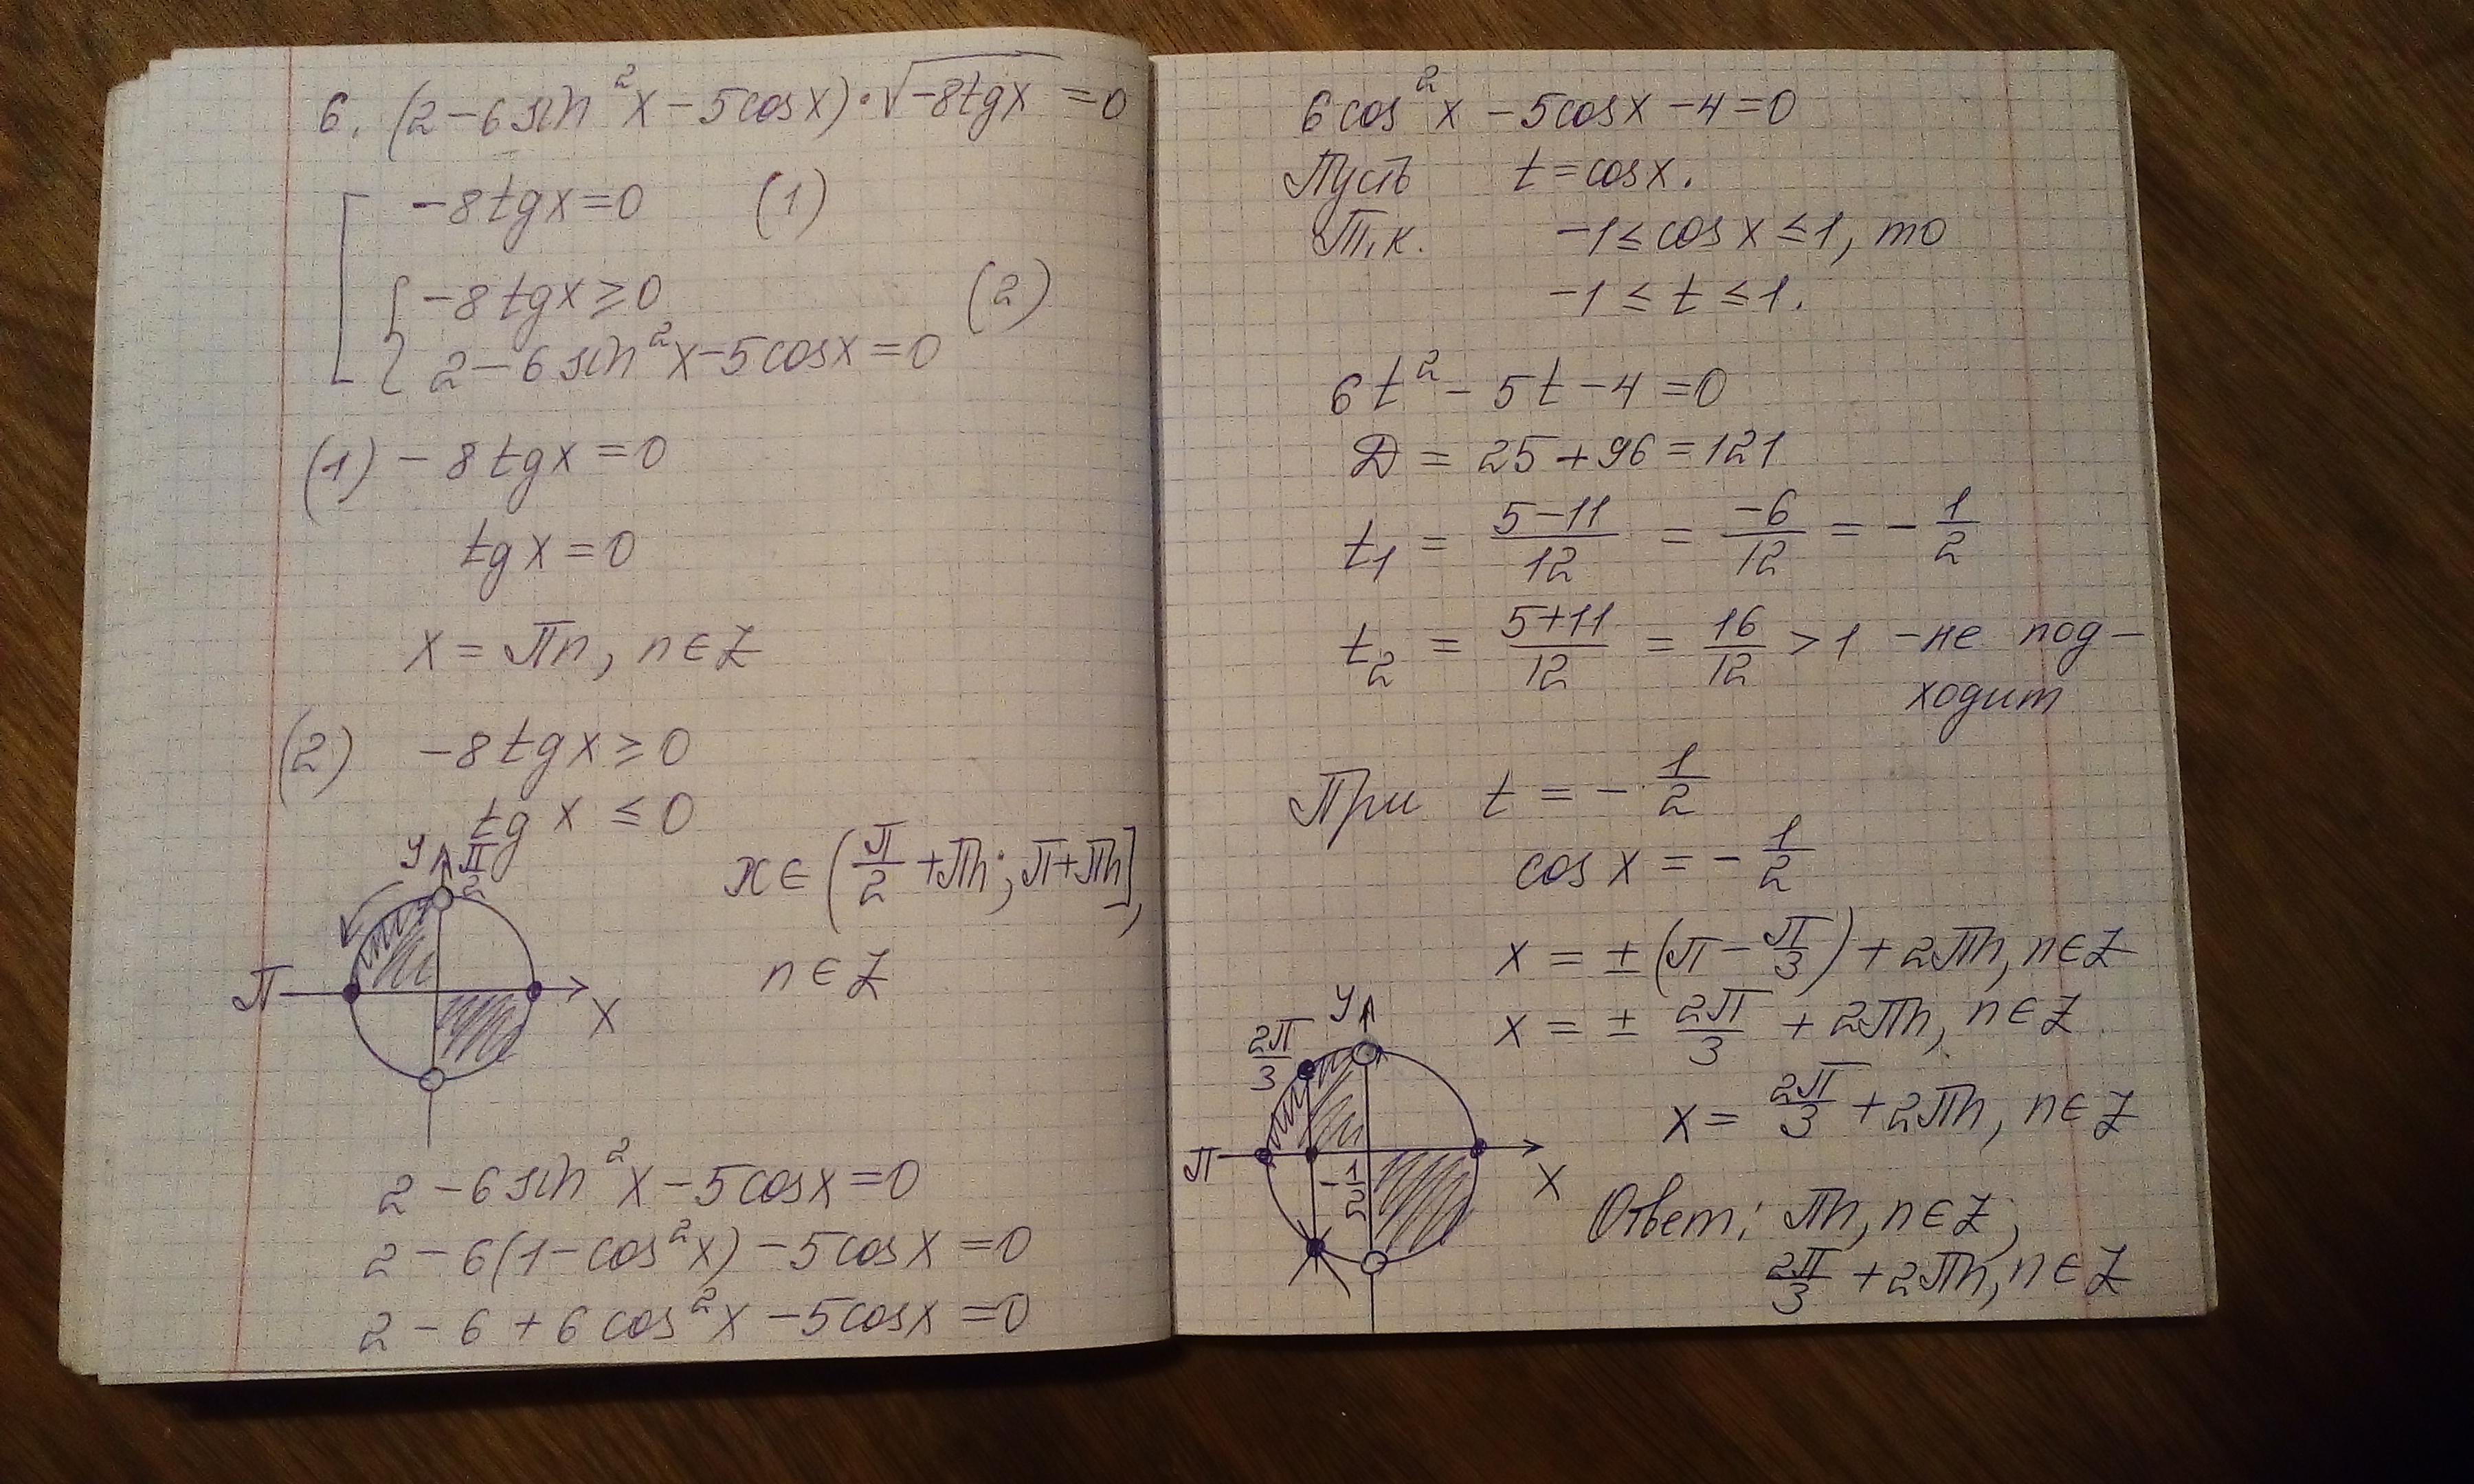 6. (2 − 6 sin²x − 5cosx)·√(−8tgx) = 0
[ −8tgx = 0 (1)
{ −8tgx ≥ 0 (2)
2 − 6 sin²x − 5cosx = 0
(1) − 8tgx = 0
tgx = 0
x = πn, n ∈ Z
(2) −8tgx ≥ 0
tgx ≤ 0
y π/2
x ∈ (π/2 + πn; π + πn],
n ∈ Z
π x
2 − 6 sin²x − 5cosx = 0
2 − 6(1 − cos²x) − 5cosx = 0
2 − 6 + 6cos²x − 5cosx = 0
6cos²x − 5cosx − 4 = 0
Пусть t = cosx.
Т.к. −1 ≤ cosx ≤ 1, то
−1 ≤ t ≤ 1.
6t² − 5t − 4 = 0
D = 25 + 96 = 121
t₁ = (5−11)/12 = −6/12 = − 1/2
t₂ = (5+11)/12 = 16/12 > 1 − не под−
ходит
При t = − 1/2
cosx = − 1/2
x = ± (π − π/3) + 2πn, n ∈ Z
x = ± 2π/3 + 2πn, n ∈ Z
x = 2π/3 + 2πn, n ∈ Z
y
2π/3
π −1/2 x
Ответ: πn, n ∈ Z;
2π/3 + 2πn, n ∈ Z